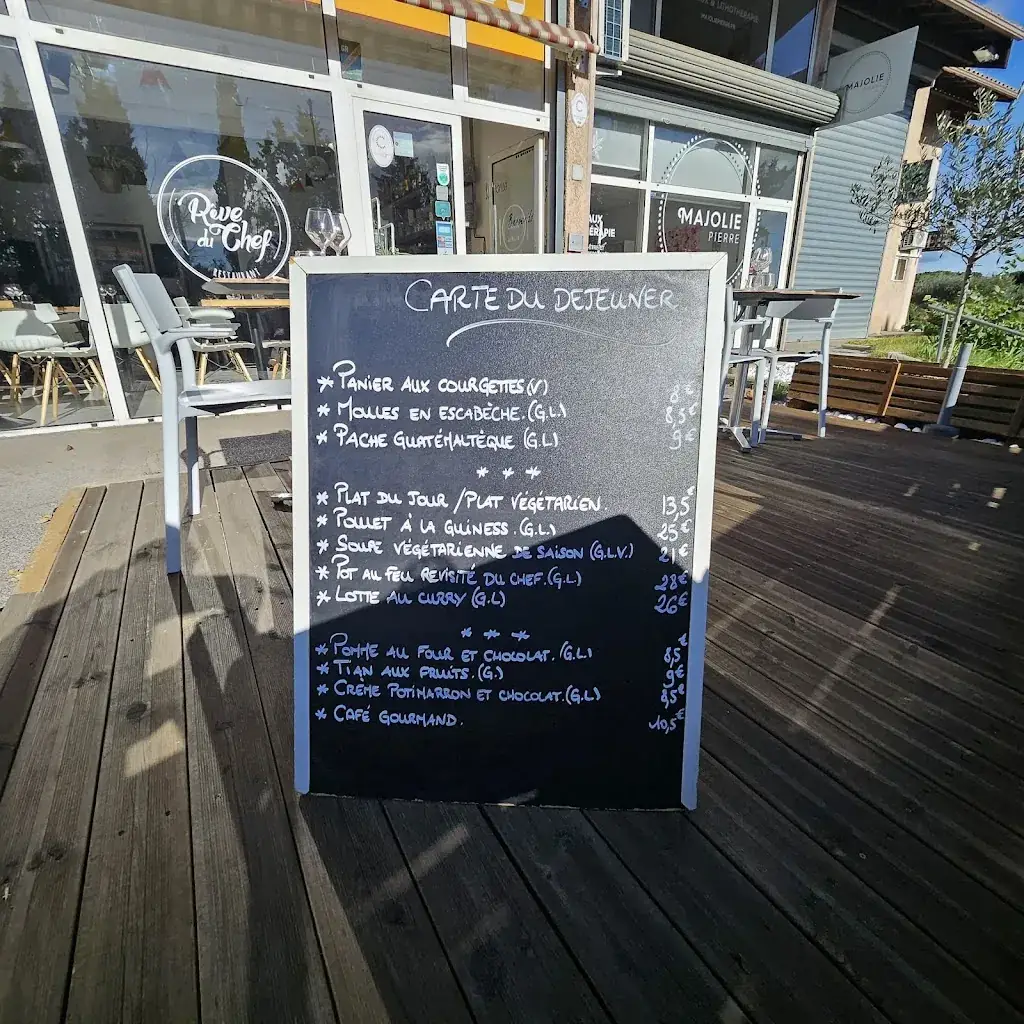 Rêve
du Chef
RESTAURANT
MAJOLIE
MAJOLIE
PIERRE
CARTE DU DEJEUNER
* PANIER AUX COURGETTES (V) 8€
* MOULES EN ESCABÈCHE. (G.L) 8,5€
* PACHE GUATÉMALTÈQUE (G.L) 9€
* * *
* PLAT DU JOUR / PLAT VÉGÉTARIEN. 13,5€
* POULET À LA GUINESS. (G.L) 25€
* SOUPE VÉGÉTARIENNE DE SAISON (G.L.V.) 21€
* POT AU FEU REVISITÉ DU CHEF. (G.L) 28€
* LOTTE AU CURRY (G.L) 26€
* * *
* POMME AU FOUR ET CHOCOLAT. (G.L) 8,5€
* TIAN AUX FRUITS. (G.) 9€
* CRÈME POTIMARRON ET CHOCOLAT. (G.L) 8,5€
* CAFÉ GOURMAND. 10,5€